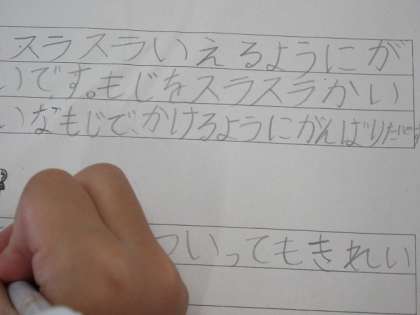 スラスラいえるようにが
いです。もじをスラスラかい
いなもじで、かけるようにがんばりたいです
ついってもきれい